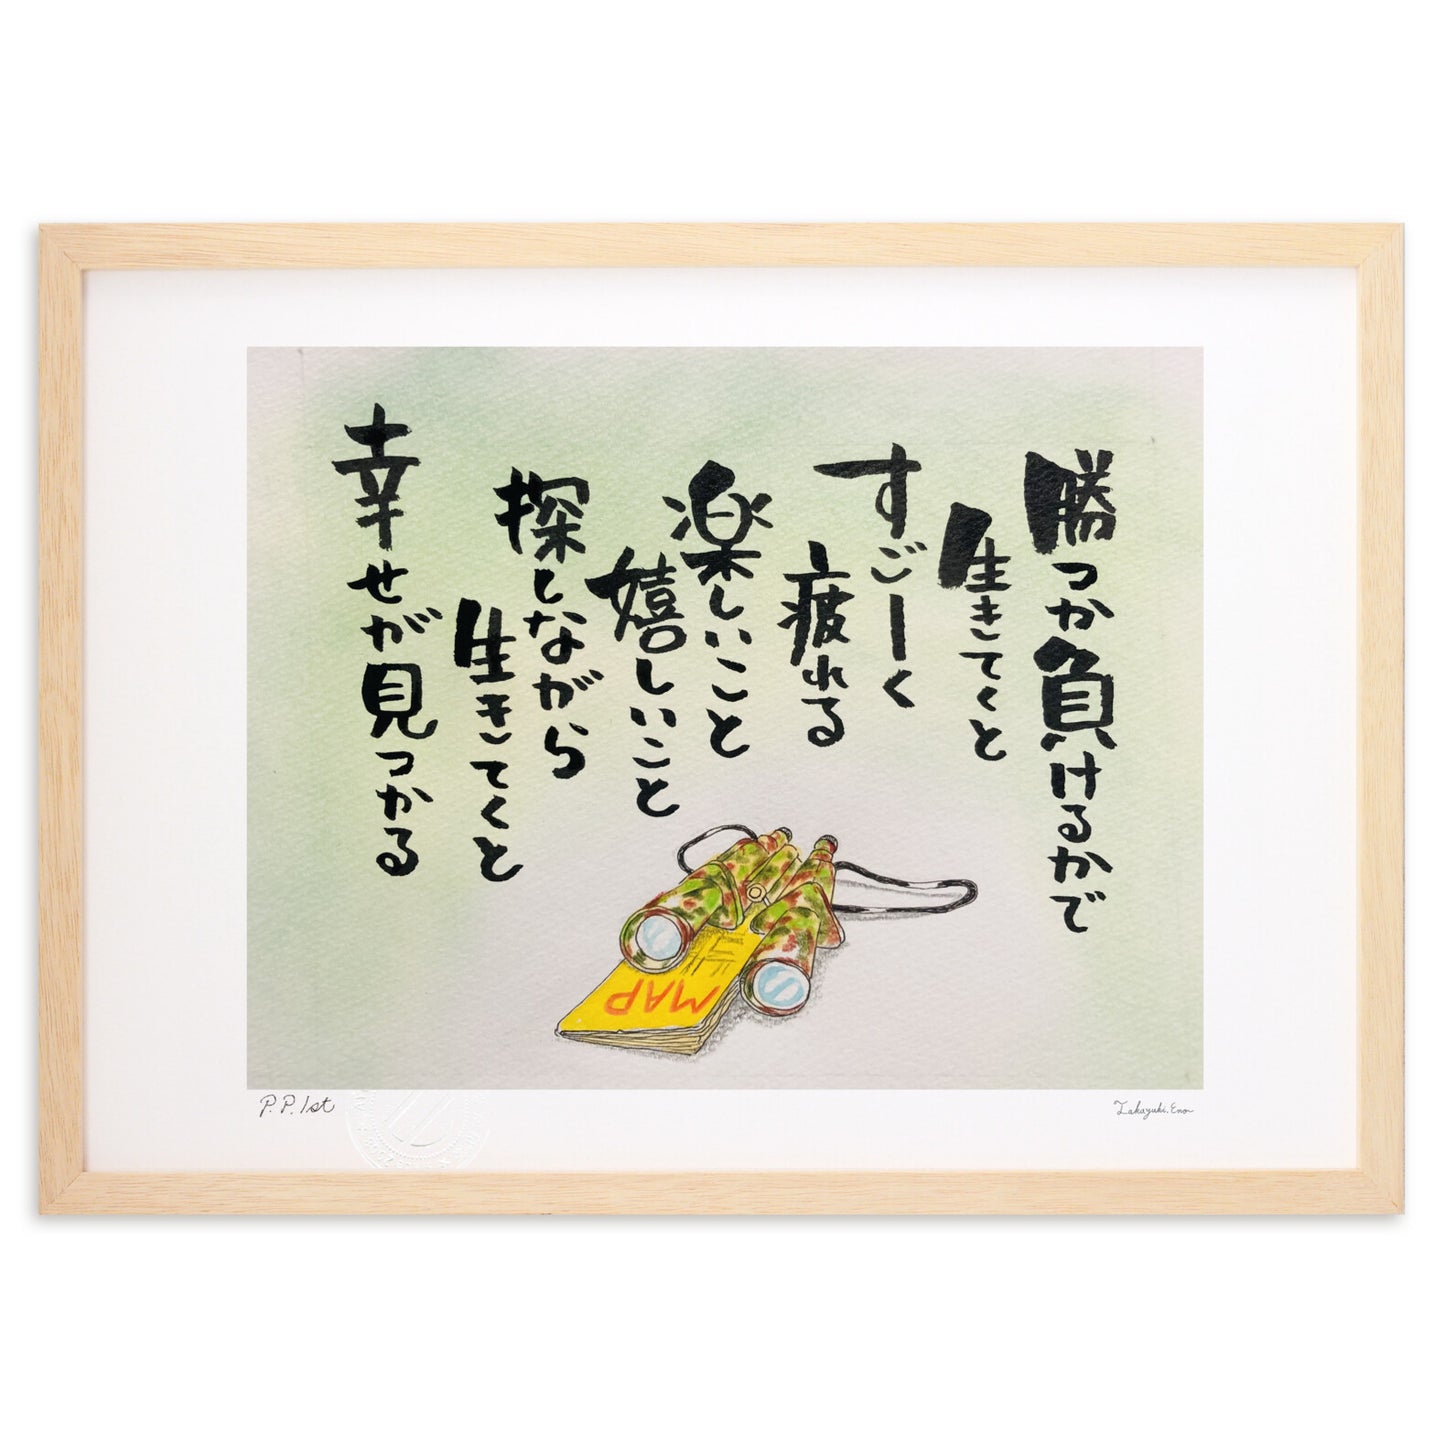 勝つか負けるかで
生きてくと
すごーく
疲れる
楽しいこと
嬉しいこと
探しながら
生きてくと
幸せが見つかる
MAP
P.P.1st
Takayuki.Enor